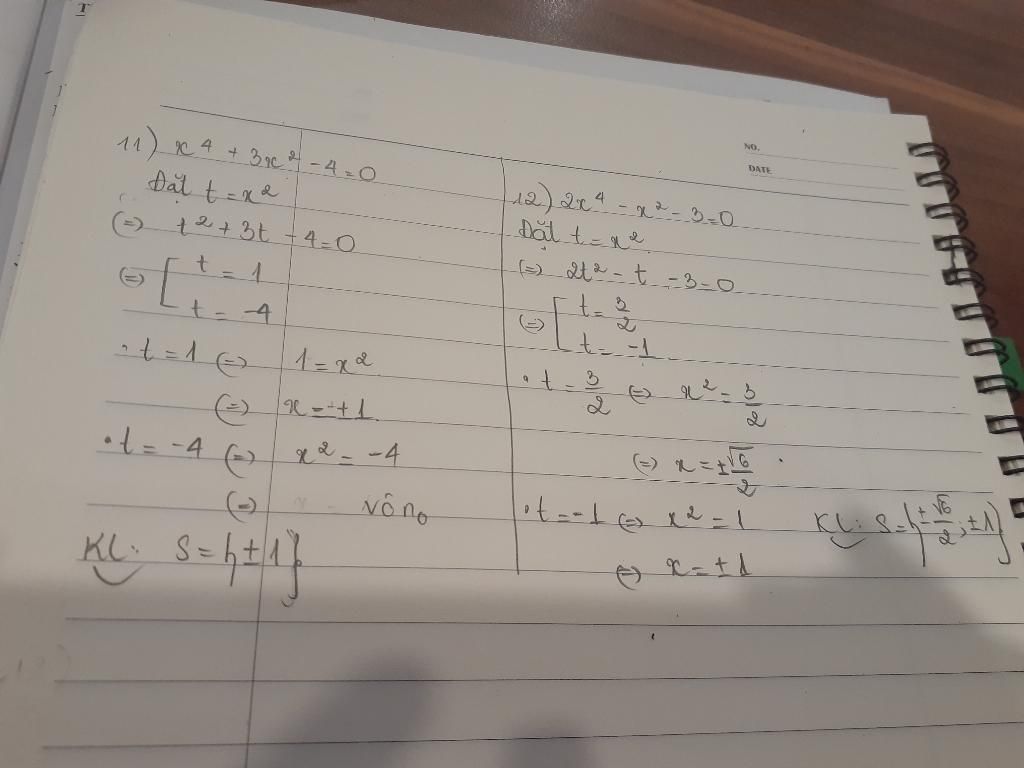 T
NO.
DATE
11) x⁴ + 3x² - 4 = 0
Đặt t = x²
(=) t² + 3t - 4 = 0
(=) [ t = 1
t = -4
• t = 1 (=) 1 = x²
(=) x = ±1
• t = -4 (=) x² = -4
(=) vô no
KL: S = {±1}
12) 2x⁴ - x² - 3 = 0
Đặt t = x²
(=) 2t² - t - 3 = 0
(=) [ t = 3/2
t = -1
• t = 3/2 (=) x² = 3/2
(=) x = ±√6/2
• t = -1 (=) x² = 1
(=) x = ±1
KL: S = {±√6/2; ±1}